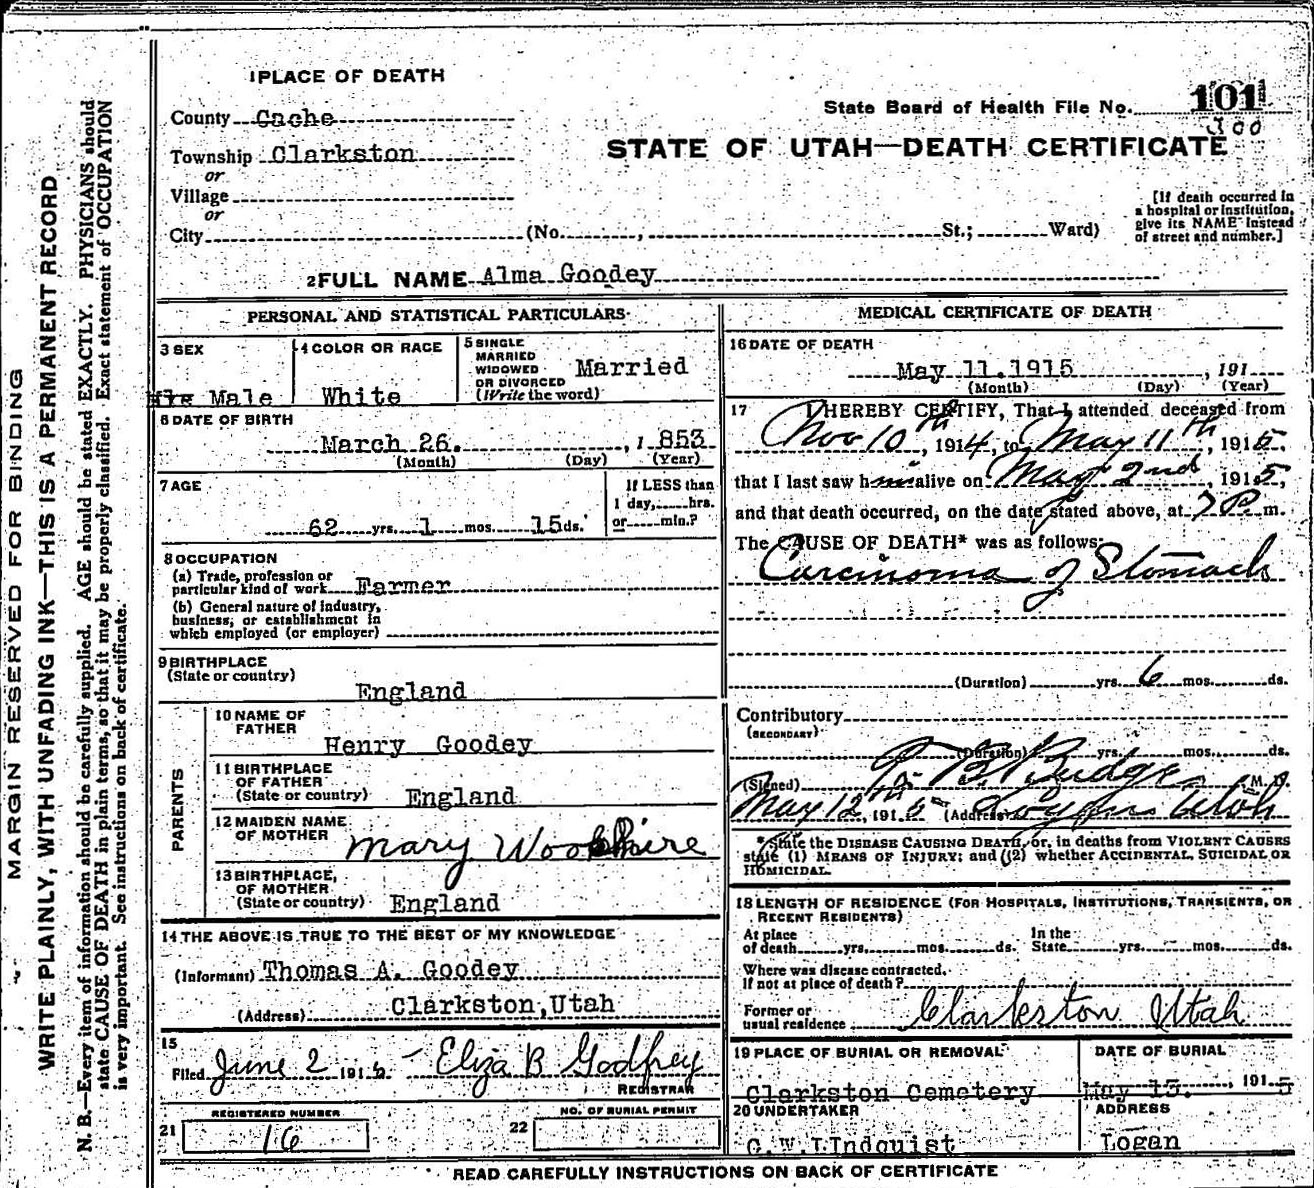 MARGIN RESERVED FOR BINDING
WRITE PLAINLY, WITH UNFADING INK—THIS IS A PERMANENT RECORD
N. B.—Every item of information should be carefully supplied. AGE should be stated EXACTLY. PHYSICIANS should
state CAUSE OF DEATH in plain terms, so that it may be properly classified. Exact statement of OCCUPATION
is very important. See instructions on back of certificate.
1 PLACE OF DEATH
County Cache
Township Clarkston
or
Village
or
City (No. , St.; Ward)
State Board of Health File No. 101
300
STATE OF UTAH—DEATH CERTIFICATE
[If death occurred in
a hospital or institution,
give its NAME instead
of street and number.]
2 FULL NAME Alma Goodey
PERSONAL AND STATISTICAL PARTICULARS
3 SEX
Male
4 COLOR OR RACE
White
5 SINGLE
MARRIED
WIDOWED
OR DIVORCED
(Write the word)
Married
6 DATE OF BIRTH
March 26. , 1 853
(Month) (Day) (Year)
7 AGE
62 yrs. 1 mos. 15 ds.
If LESS than
1 day, hrs.
or min.?
8 OCCUPATION
(a) Trade, profession or
particular kind of work Farmer
(b) General nature of industry,
business, or establishment in
which employed (or employer)
9 BIRTHPLACE
(State or country)
England
PARENTS
10 NAME OF
FATHER
Henry Goodey
11 BIRTHPLACE
OF FATHER
(State or country) England
12 MAIDEN NAME
OF MOTHER Mary
13 BIRTHPLACE,
OF MOTHER
(State or country) England
14 THE ABOVE IS TRUE TO THE BEST OF MY KNOWLEDGE
(Informant) Thomas A. Goodey
(Address) Clarkston, Utah
15
Filed June 2 1915 Eliza B Godfrey
REGISTRAR
REGISTERED NUMBER
21 16
NO. OF BURIAL PERMIT
22
MEDICAL CERTIFICATE OF DEATH
16 DATE OF DEATH
May 11.1915 , 191
(Month) (Day) (Year)
17 I HEREBY CERTIFY, That I attended deceased from
Nov 10th, 1914, to May 11th, 1915,
that I last saw him alive on May 2nd, 1915,
and that death occurred, on the date stated above, at 7 P. m.
The CAUSE OF DEATH* was as follows:
Carcinoma of Stomach
(Duration) yrs. 6 mos. ds.
Contributory
(SECONDARY)
(Duration) yrs. mos. ds.
(Signed) Budge M. D.
May 12th, 1915 (Address) Utah
*State the DISEASE CAUSING DEATH, or, in deaths from VIOLENT CAUSES
state (1) MEANS OF INJURY; and (2) whether ACCIDENTAL, SUICIDAL OR
HOMICIDAL.
18 LENGTH OF RESIDENCE (FOR HOSPITALS, INSTITUTIONS, TRANSIENTS, OR
RECENT RESIDENTS)
At place
of death yrs. mos. ds.
In the
State yrs. mos. ds.
Where was disease contracted.
If not at place of death?
Former or
usual residence Clarkston Utah
19 PLACE OF BURIAL OR REMOVAL
Clarkston Cemetery
DATE OF BURIAL
May 15. , 1915
20 UNDERTAKER
G.W.LIndquist
ADDRESS
Logan
READ CAREFULLY INSTRUCTIONS ON BACK OF CERTIFICATE